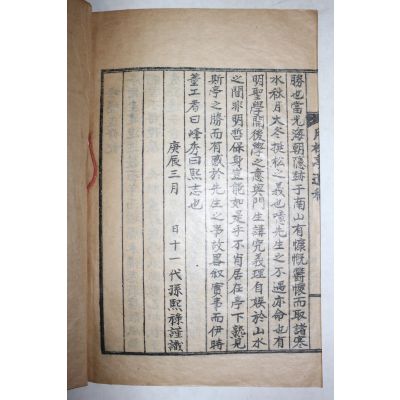 勝也當光海朝隱跡于南山有慷慨鬱懷而取諸寒
水秋月大冬挺松之義也噫先生之不遇亦命也有
明聖學開後學之意與門生講究義理自娛於山水
之間非明哲保身豈能如是乎不肖居在亭下熟見
斯亭之勝而有感於先生之事故畧叙實事而伊時
董工君曰峰秀曰熙志也
庚辰三月 日十一代孫熙祿謹識